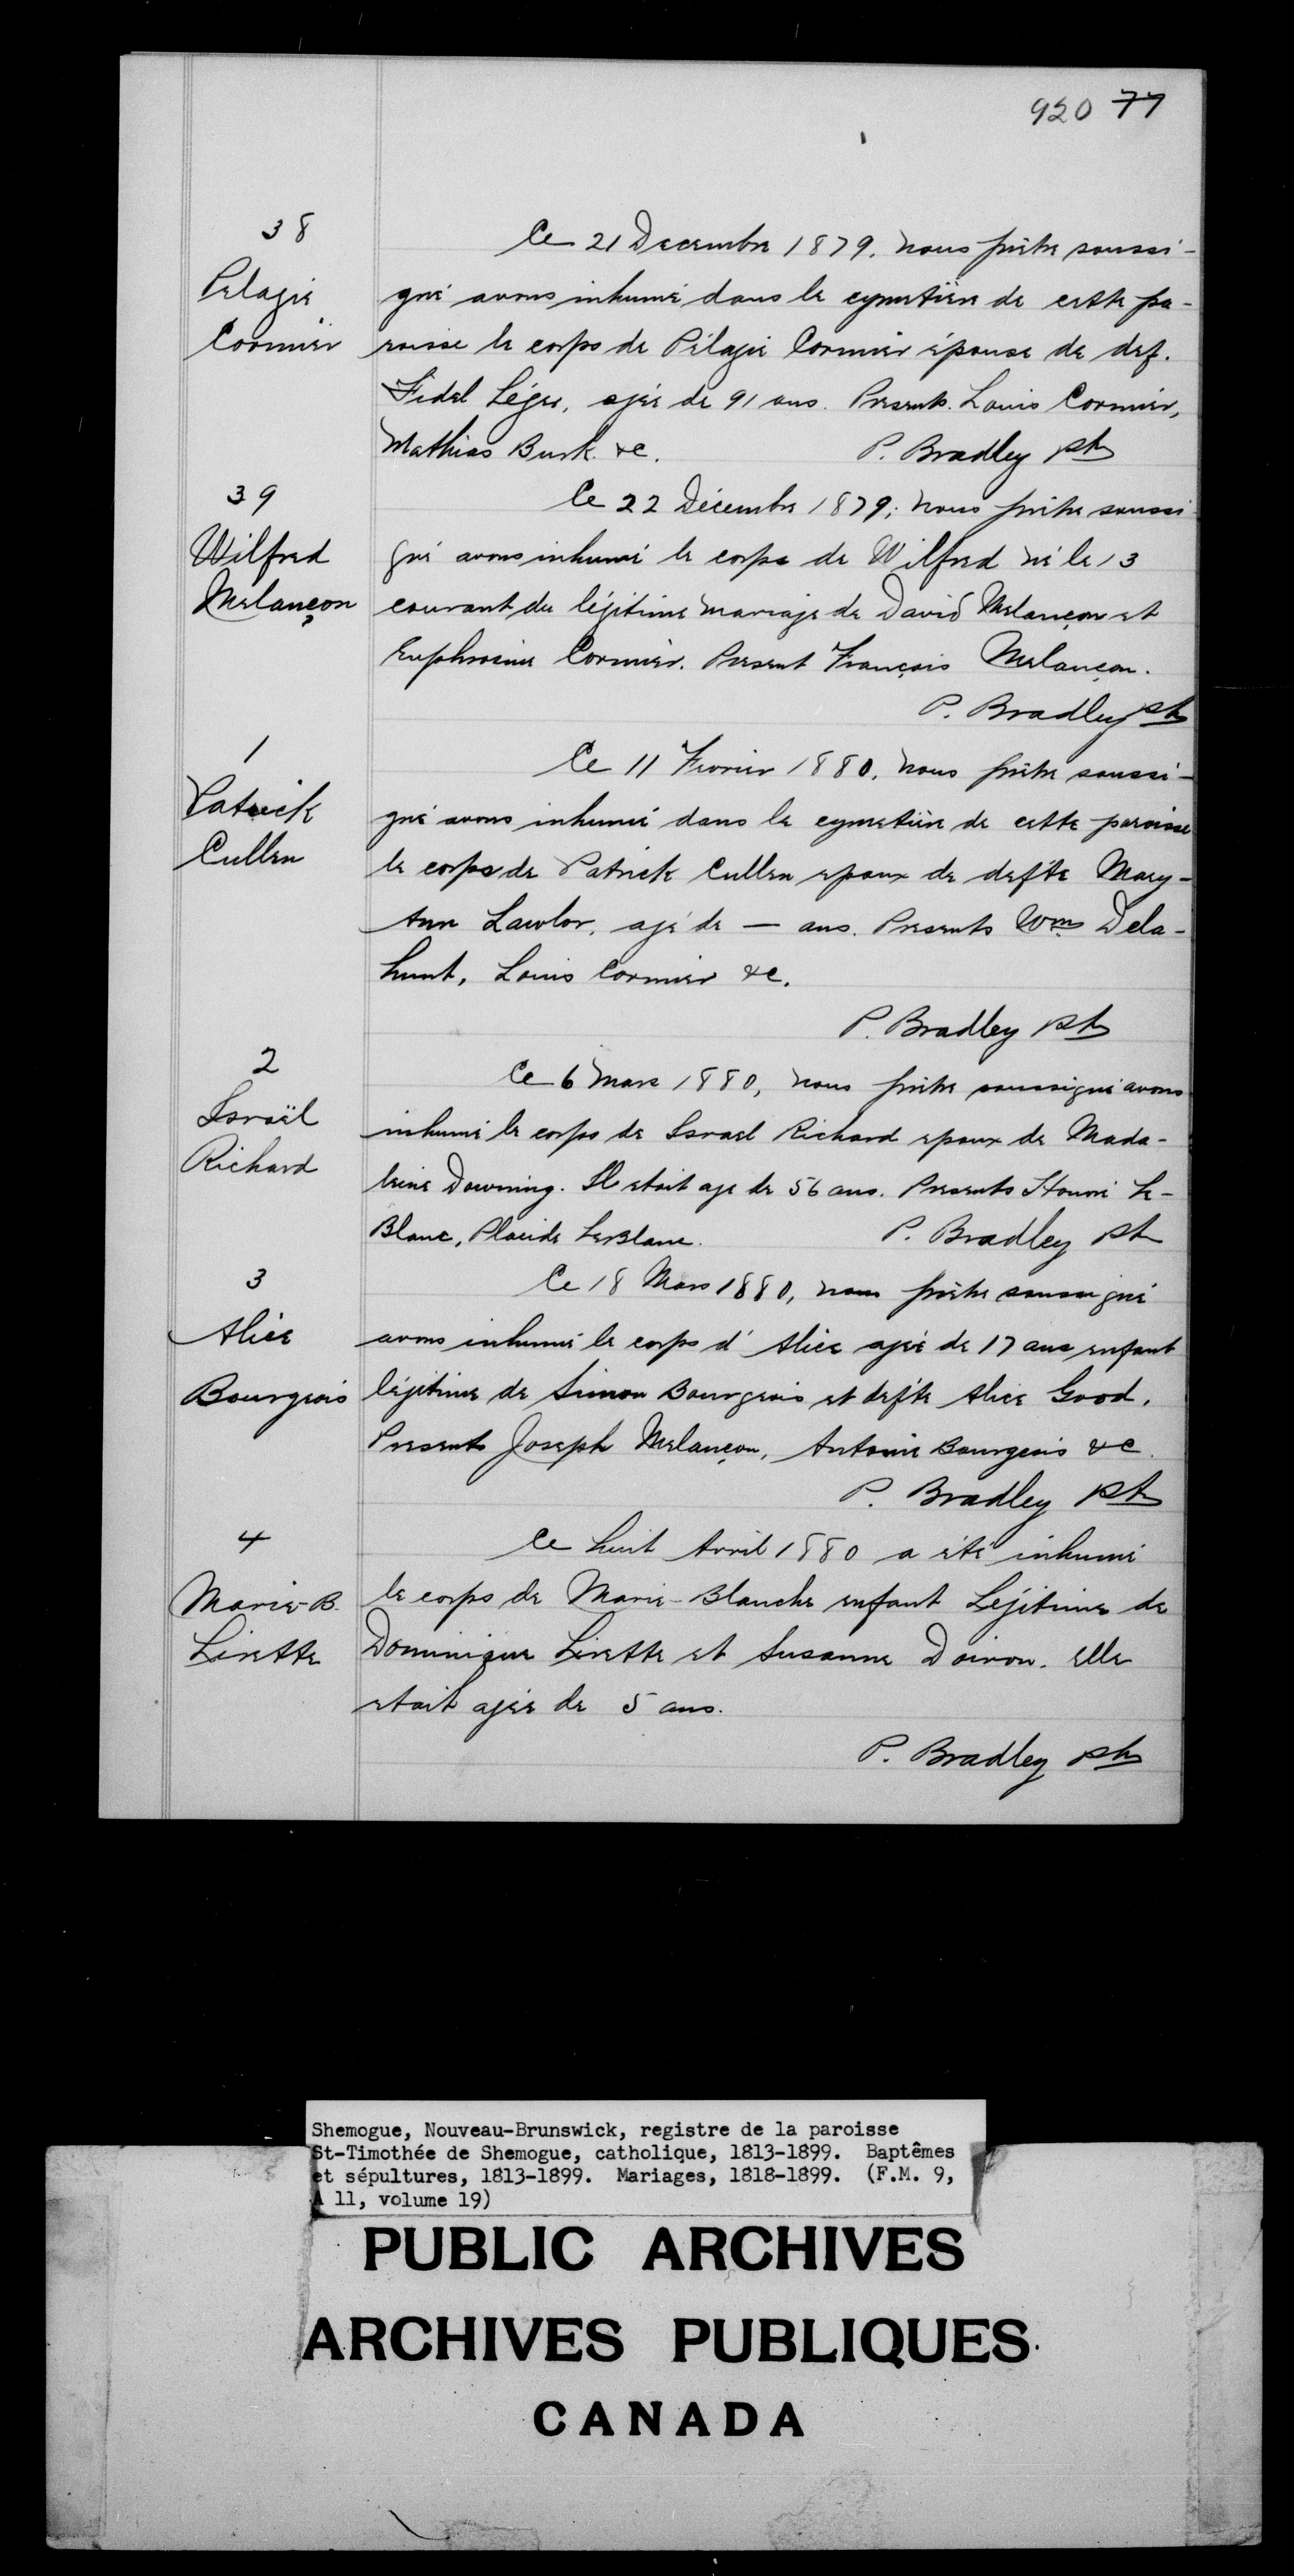 920 77
38
Pelagie
Cormier
Ce 21 Decembre 1879. nous prêtre soussi-
gné avons inhumé dans le cymetière de cette pa-
roisse le corps de Pélagie Cormier épouse de def.
Fidel Léger, agée de 91 ans. Presents. Louis Cormier,
Mathias Burk. &c. P. Bradley ptr
39
Wilfred
Melançon
Ce 22 Décembre 1879, nous prêtre soussi
gné avons inhumé le corps de Wilfred né le 13
courant du légitime mariage de David Melançon et
Euphrosine Cormier. Present François Melançon.
P. Bradley ptr
1
Patrick
Cullen
Ce 11 Fevrier 1880, nous prêtre soussi-
gné avons inhumé dans le cymetière de cette paroisse
le corps de Patrick Cullen epoux de defte Mary-
Ann Lawlor, agé de — ans. Presents Wm Dela-
hunt, Louis Cormier &c.
P. Bradley ptr
2
Israël
Richard
Ce 6 Mars 1880, nous prêtre soussigné avons
inhumé le corps de Israel Richard epoux de Mada-
leine Downing. Il etait age de 56 ans. Presents Honoré Le-
Blanc, Placide LeBlanc. P. Bradley ptr
3
Alice
Bourgeois
Ce 18 Mars 1880, nous prêtre soussigné
avons inhumé le corps d'Alice agée de 17 ans enfant
légitime de Simon Bourgeois et defte Alice Good.
Presents Joseph Melançon, Antoine Bourgeois &c.
P. Bradley ptr
4
Marie-B.
Lirette
Ce huit Avril 1880 a été inhumé
le corps de Marie-Blanche enfant Légitime de
Dominique Lirette et Susanne Doiron. elle
etait agée de 5 ans.
P. Bradley ptr
Shemogue, Nouveau-Brunswick, registre de la paroisse
St-Timothée de Shemogue, catholique, 1813-1899. Baptêmes
et sépultures, 1813-1899. Mariages, 1818-1899. (F.M. 9,
A 11, volume 19)
PUBLIC ARCHIVES
ARCHIVES PUBLIQUES
CANADA